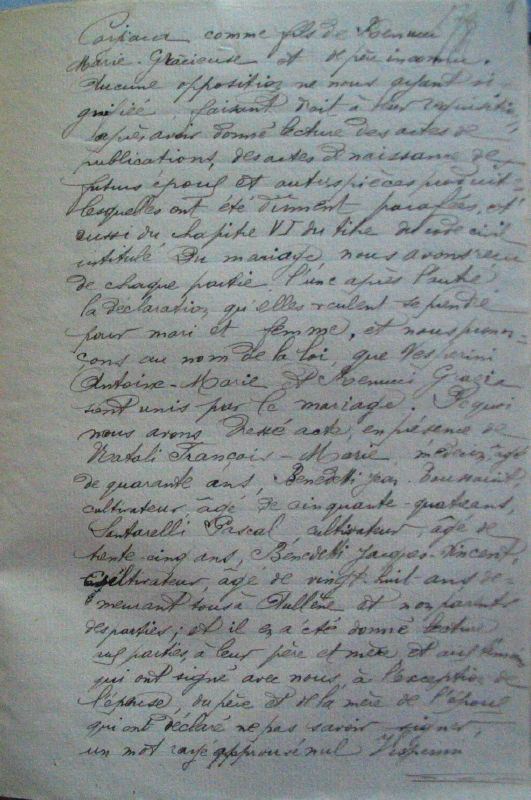 comme fils de
Marie-Gracieuse et de père inconnu.
Aucune opposition ne nous ayant si
gnifiée, faisant droit à leur
après avoir donné lecture des actes de
publications, des actes de naissance de
futurs époux et autres pièces produit-
lesquelles ont été dûment parafées, et
aussi du chapitre VI du titre du code civil
intitulé Du mariage, nous avons reçu
de chaque partie l'une après l'autre
la déclaration qu'elles veulent se prendre
pour mari et femme, et nous pronon-
çons au nom de la loi, que Vesperini
Antoine-Marie et Gracia
sont unis par le mariage. De quoi
nous avons dressé acte, en présence de
Natali François-Marie, âgé
de quarante ans, Benedeti Jean Toussaint,
cultivateur, âgé de cinquante-quatre ans,
Santarelli Pascal, cultivateur, âgé de
trente-cinq ans, Bénedeti Jacques-Vincent,
cultivateur âgé de vingt-huit ans de-
meurant tous à Aullène et non parents
des parties; et il en a été donné lecture
aux parties, à leur père et mère et aux témoins
qui ont signé avec nous, à l'exception de
l'épouse, du père et de la mère de l'époux
qui ont déclaré ne pas savoir signer,
un mot rayé approuvé nul